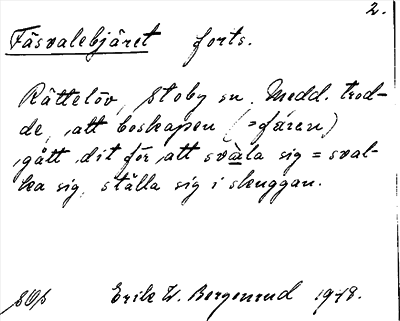 2.
Fäsvalebjäret forts.
Rättelöv, Stoby sn. Medd. trod-
de, att boskapen (=fären)
gått dit för att svàla sig = sval-
ka sig, ställa sig i skuggan.
Erik W. Bergenrud 1948.